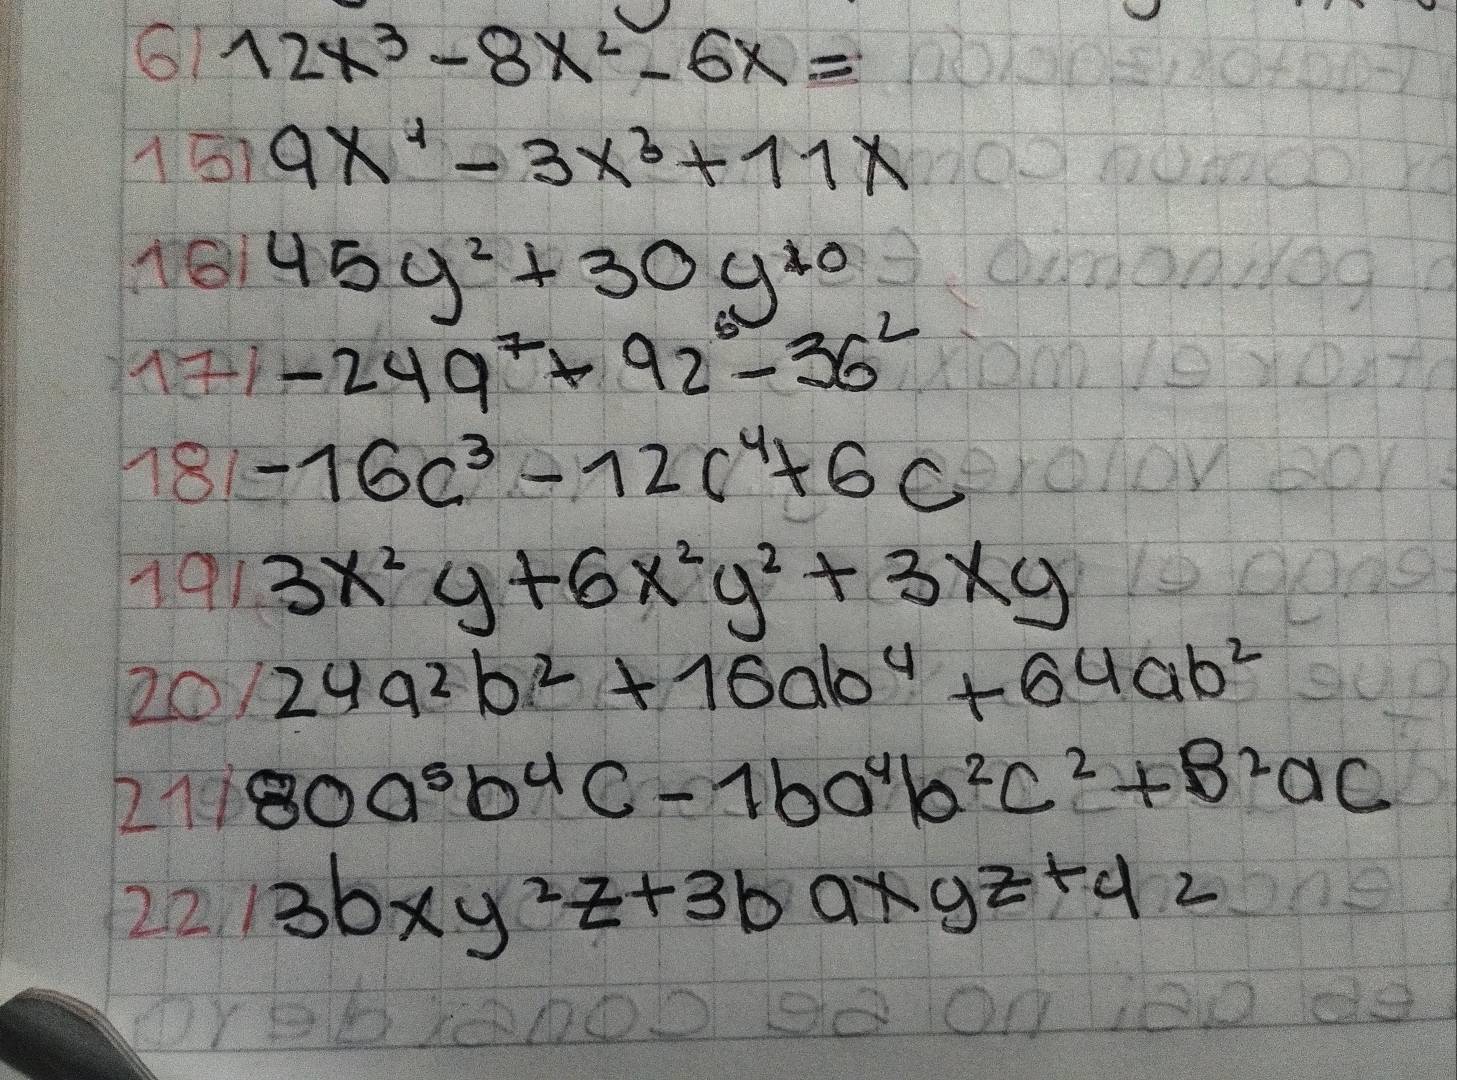 6) 12x³ - 8x² - 6x =
15) 9x⁴ - 3x³ + 11x
16) 45y² + 30y¹⁰
17) -24q⁷ + 92⁵ - 36²
18) -16c³ - 12c⁴ + 6c
19) 3x²y + 6x²y² + 3xy
20) 24a²b² + 16ab⁴ + 64ab²
21) 80a⁵b⁴c - 16a⁴b²c² + 8²ac
22) 3bxy²z + 3baxyz + 42